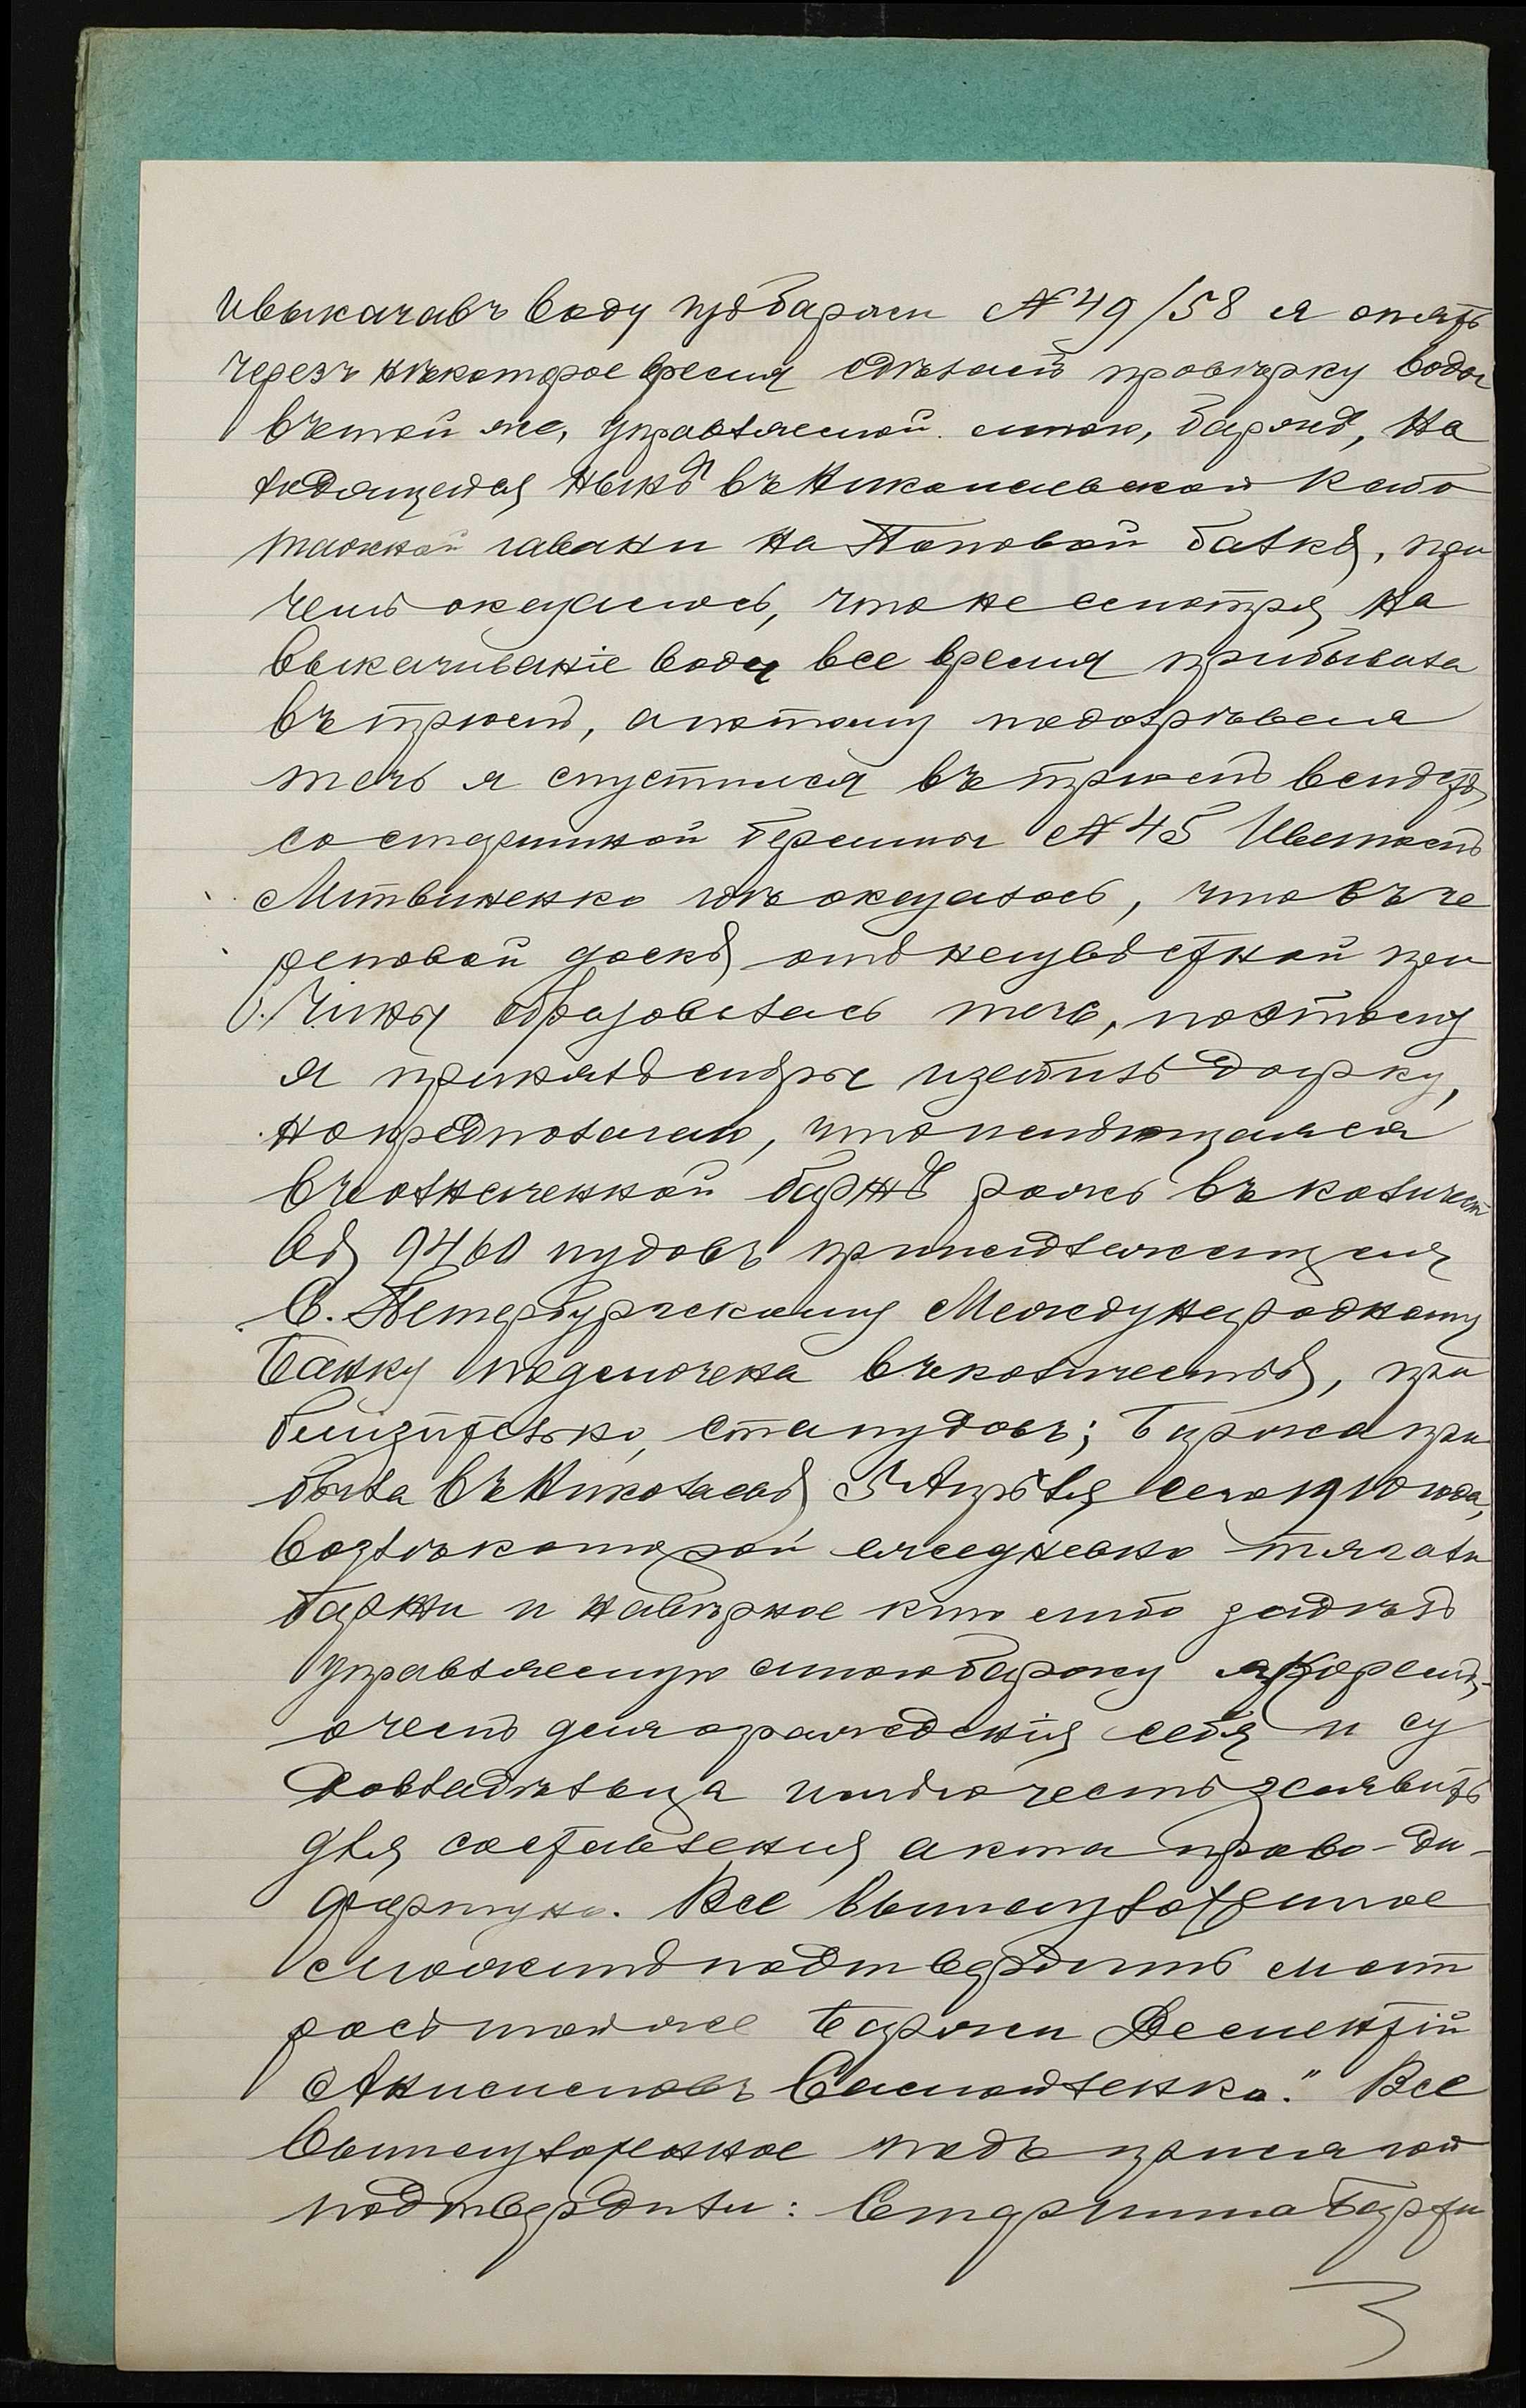 и выкачавъ воду изъ баржи № 49/58 я опять
черезъ нѣкоторое время сдѣлалъ провѣрку воды
въ той же, управляемой мною, баржѣ, на
ходящейся нынѣ въ Николаевской Кабо
тажной гавани на Поповой балкѣ, при
чемъ оказалось, что не смотря на
выкачиваніе воды все время прибывала
въ трюмъ, а потому подозрѣвая
течь я спустился въ трюмъ вмѣстѣ
со старшиной баржи № 45 Иваномъ
Литвиненко гдѣ оказалось, что въ че
реповой доскѣ отъ неизвѣстной при
чины образовалась течь, поэтому
я принялъ мѣры извѣтить дырку,
но предполагаю, что имѣющаяся
въ означенной баржѣ рожь въ количест
вѣ 9460 пудовъ принадлежащая
С. Петербургскому Международному
Банку подмочена въ количествѣ, при
близительно, ста пудовъ; Баржа при
была въ Николаевъ 5 Апрѣля сего 1910 года,
возлѣ которой ежедневно тягали
баржи и навѣрное кто либо задѣлъ
управляемую мною баржу якоремъ,
о чемъ для огражденія себя и су
довладѣльца имѣю честь заявить
для составленія акта право-ди-
фартуна. Все вышеизложенное
можетъ подтвердить мат
росъ той же баржи Дементій
Анисимовъ Самойленко." Все
вышеизложенное подъ присягой
подтвердили: Старшина баржи